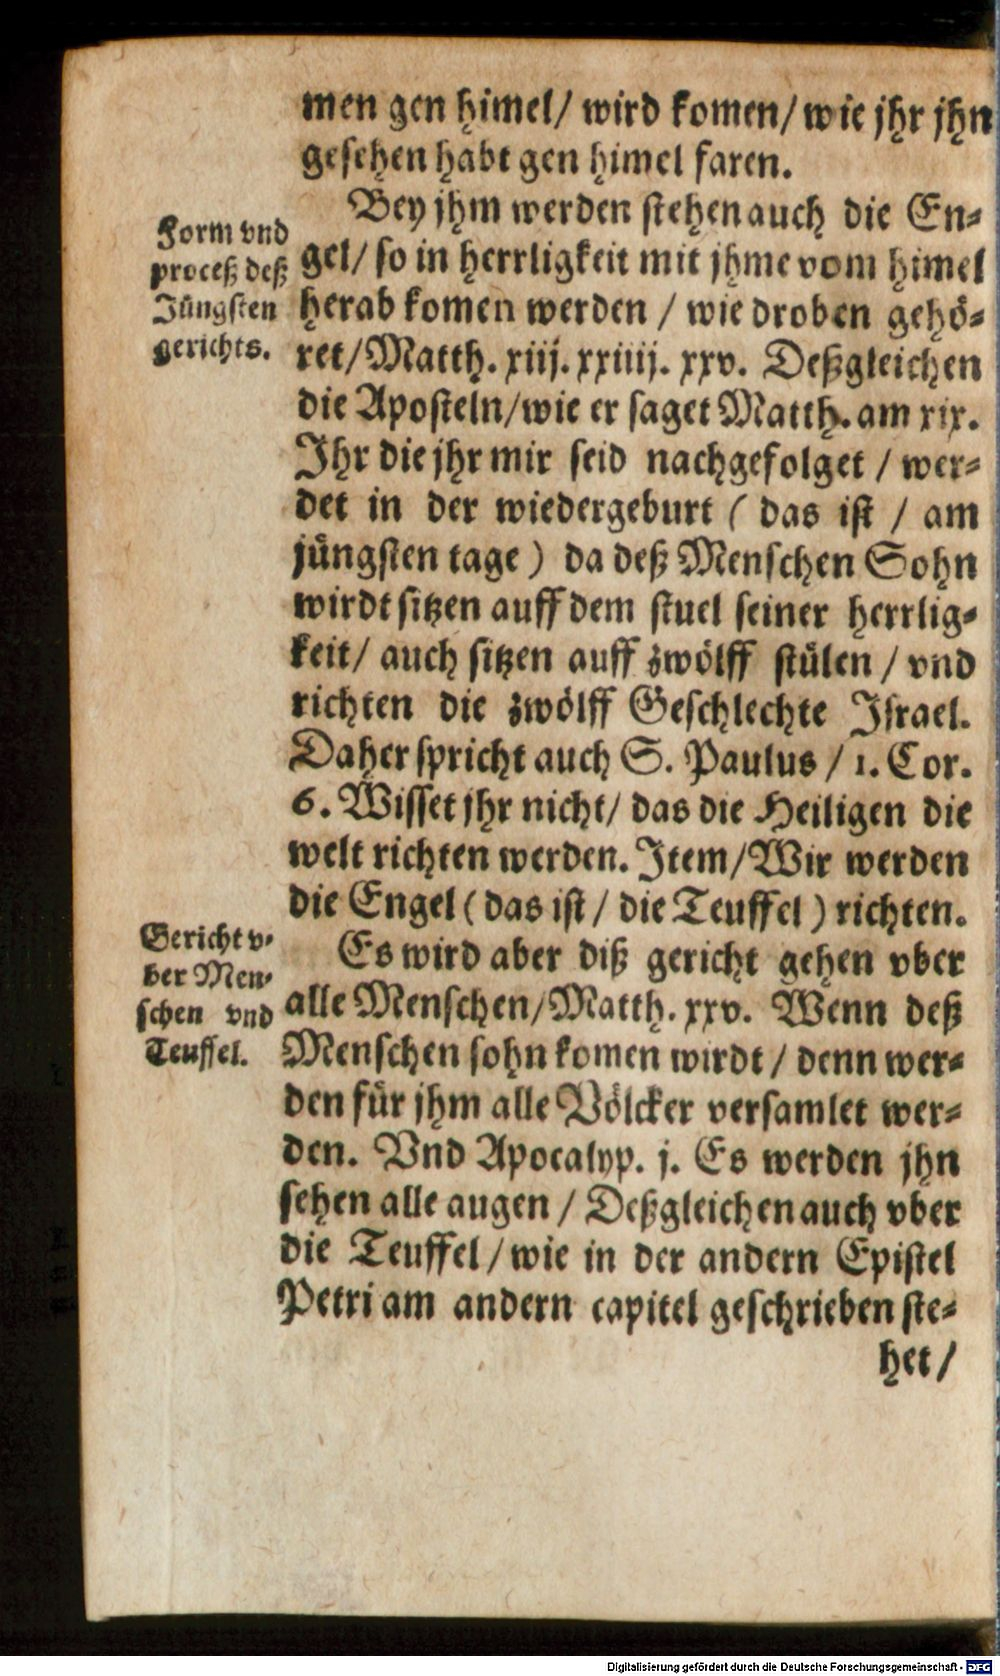 men gen himel/ wird komen/ wie jhr jhn
gesehen habt gen himel faren.
Bey jhm werden stehen auch die En⸗
gel/ so in herrligkeit mit jhme vom himel
herab komen werden / wie droben gehö⸗
ret/ Matth. xiij. xxiiij. xxv. Deßgleichen
die Aposteln/ wie er saget Matth. am xix.
Ihr die jhr mir seid nachgefolget / wer⸗
det in der wiedergeburt ( das ist / am
jüngsten tage ) da deß Menschen Sohn
wirdt sitzen auff dem stuel seiner herrlig⸗
keit/ auch sitzen auff zwölff stülen / vnd
richten die zwölff Geschlechte Israel.
Daher spricht auch S. Paulus / 1. Cor.
6. Wisset jhr nicht/ das die Heiligen die
welt richten werden. Item/ Wir werden
die Engel ( das ist / die Teuffel ) richten.
Es wird aber diß gericht gehen vber
alle Menschen/ Matth. xxv. Wenn deß
Menschen sohn komen wirdt / denn wer⸗
den für jhm alle Völcker versamlet wer⸗
den. Vnd Apocalyp. j. Es werden jhn
sehen alle augen / Deßgleichen auch vber
die Teuffel / wie in der andern Epistel
Petri am andern capitel geschrieben ste⸗
het /
Form vnd
proceß deß
Jüngsten
gerichts.
Gericht v⸗
ber Men⸗
schen vnd
Teuffel.
Digitalisierung gefördert durch die Deutsche Forschungsgemeinschaft - DFG